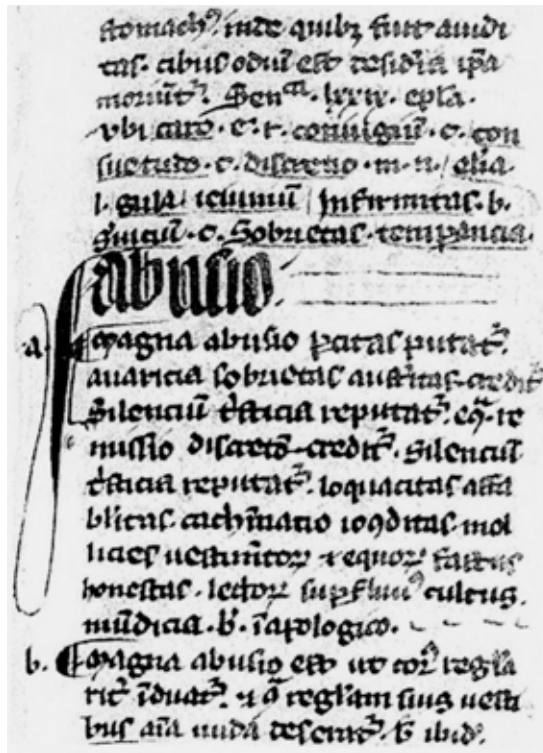 stomachꝰ. inde quibꝫ fuit auidi
tas. cibus odiū est desid̾ia ip̄a
moriūt᷑. Senᶜᵃ. lxxix. ep̄la.
vbi caro. e. r. conuigiū. c. con
suetudo. c. discretio. m. n. elia.
l. gula ieiuniū Infirmitas. b.
. c. Sobrietas. temꝑancia.
abusio.
a. Magna abusio ꝑcitas putat᷑.
auaricia sobrietas aust̾itas. credit᷑
Silenciū t̾sticia reputat᷑. eq̄. re
missio discreto. credit᷑. Silenciū
t̾sticia reputat᷑. loquacitas affa
bl̾itas. cachīnatio ioꝯditas. mol
licies uestimētoꝝ ⁊ equoꝝ fastus
honestas. lectoꝝ suꝑfluꝰ cultus.
mūdicia. b̾. ī apologico.
b. Magna abusio est ut corꝰ regl̾a
rit᷑ īduat᷑. ⁊ q̄ regl̾am suis uesti
bus aīa nuda deserat᷑. b̾ ibid̾.